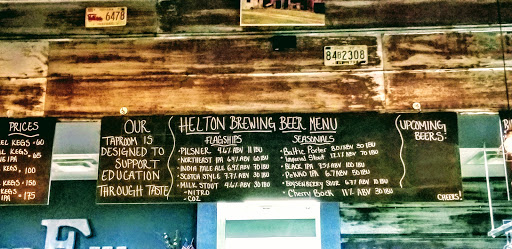 6478
84 2308
PRICES
KEGS - 60
KEGS - 65
KEGS - 100
KEGS - 150
IPA - 175
OUR
TAPROOM IS
DESIGNED TO
SUPPORT
EDUCATION
THROUGH TASTE
HELTON BREWING BEER MENU
FLAGSHIPS
• PILSNER 4.6% ABV 11 IBU
• NORTHEAST IPA 6.9% ABV 60 IBU
• INDIA PALE ALE 6.9% ABV 70 IBU
• SCOTCH STYLE 7.7% ABV 30 IBU
• MILK STOUT 4.9% ABV 30 IBU
- NITRO
- CO2
SEASONALS
• Baltic Porter 8.0% ABV 30 IBU
• Imperial Stout
• BLACK IPA 7.5% ABV 100 IBU
6.7% ABV 50 IBU
• BOYSENBERRY SOUR
• Cherry Bock 11% ABV 30 IBU
UPCOMING
BEERS:
CHEERS!